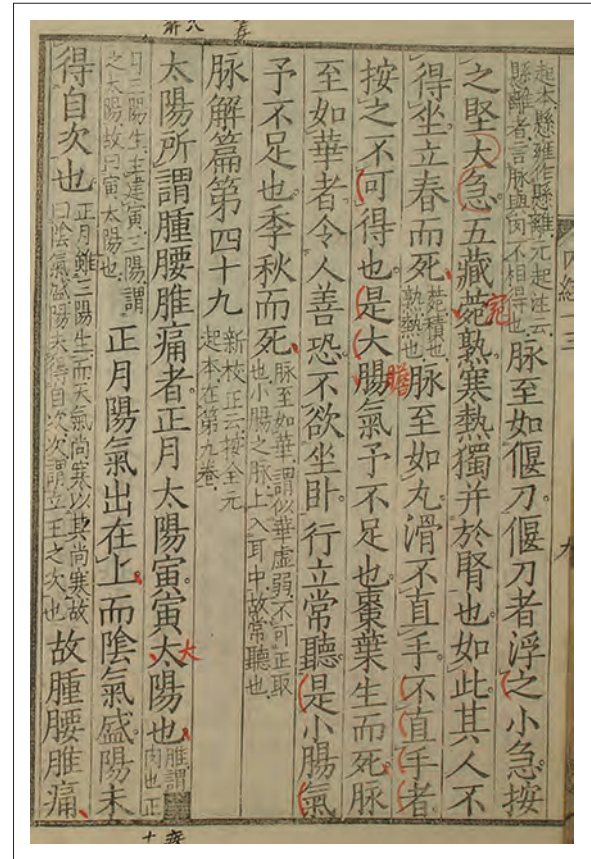 內經十三
九
起本懸雍作懸離元起注云
懸離者言脉與肉不相得也
脉至如偃刀偃刀者浮之小急按
之堅大急五藏菀熟寒熱獨并於腎也如此其人不
宛
得坐立春而死
菀積也
熟熱也
脉至如丸滑不直手不直手者
按之不可得也是大腸氣予不足也棗葉生而死脉
膽
至如華者令人善恐不欲坐卧行立常聽是小腸氣
予不足也季秋而死
脉至如華謂似華虛弱不可正取
也小腸之脉上入耳中故常聽也
脉解篇第四十九
新校正云按全元
起本在第九卷
太陽所謂腫腰脽痛者正月太陽寅寅太陽也
大
脽謂
肉也正
月三陽生主建寅三陽謂
之太陽故曰寅太陽也
正月陽氣出在上而陰氣盛陽未
得自次也
正月雖三陽生而天氣尚寒以其尚寒故
曰陰氣盛陽未得自次次謂立王之次也
故腫腰脽痛